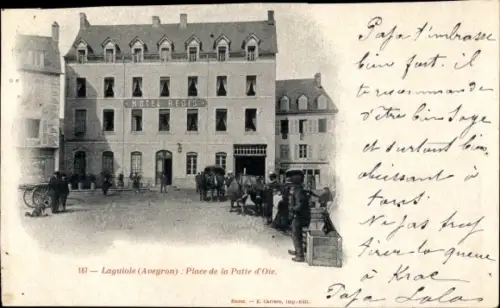 HOTEL REGIS
Papa t'imbrasse
bien fort. il
te recommande
d'être bien sage
et surtout bien
obéissant à
tous.
Ne fais pas trop
tirer la queue
à Krac
Papa Lolo
167 — Laguiole (Aveyron) : Place de la Patte d'Oie.
E. Carrère, imp.-édit.